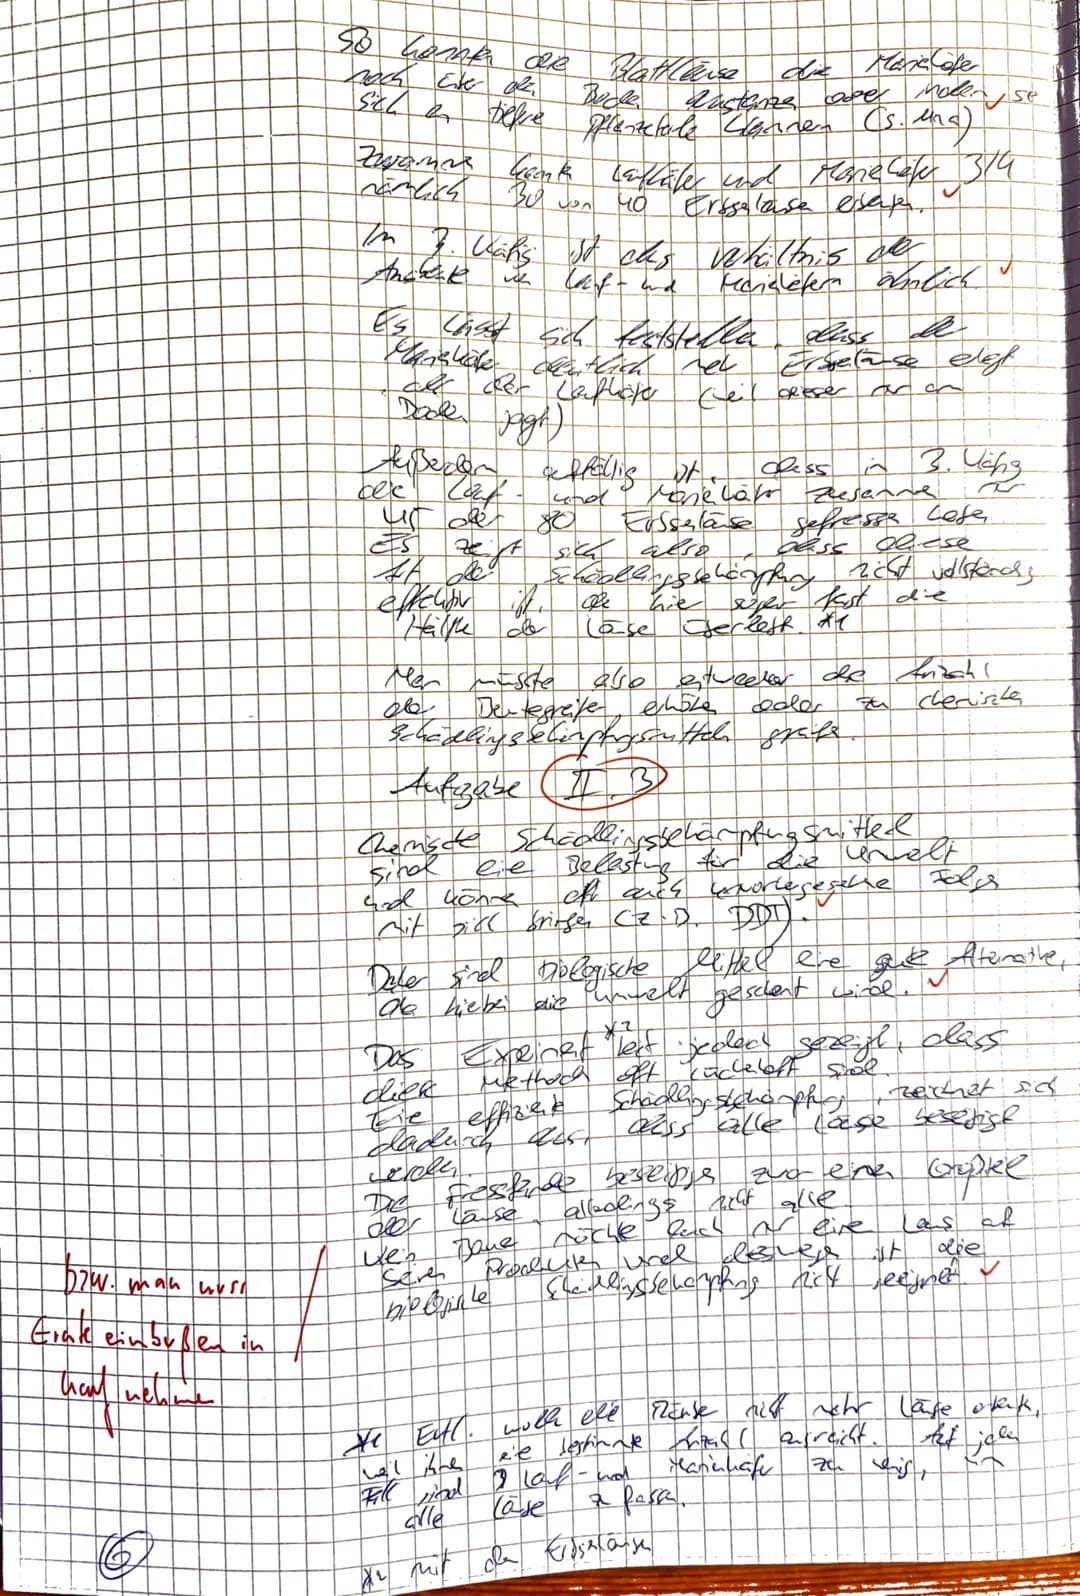 So die Blattläuse die Marienkäfer
noch über den Boden oder indem se
sich an tiefere Pflanzteile klammern (s. Mng)
Zusamme Laufkäfer und Marienkäfer 3/4
nämlich 30 von 40 Erbsseläuse erbeuten.
Im 3. Käfig ist das Verhältnis der
Anzahl von Lauf- und Marienkäfern ähnlich
Es lässt sich feststellen, dass de
Marienkäfer deutlich mehr Erbseläuse
als der Laufkäfer (weil dieser nur am
Boden jagt)
Außerdem auffällig ist, dass in 3. Käfig
die Lauf- und Marienkäfer zusamme nur
45 der 80 Erbsseläuse gefressen haben
Es zeigt sich also, dass diese
Art der Schädlingsbekämpfung nicht vollständig
effektiv ist, da hier sogar fast die
Hälfte der Läuse überlebt. *1
Man müsste also entweder die Anzahl
der Beutegreifer erhöhen oder zu chemische
Schädlingsbekämpfugsmitteln greifen.
Aufgabe II. 3
Chemische Schädlingsbekämpfugsmittel
sind eine Belastung für die Umwelt
und können oft auch unvorhergesehene Folgen
mit sich bringen (z.B. DDT).
Daher sind biologische Mittel eine gute Alternative,
da hiebei die Umwelt geschont wird.
Das Experiment *2 hat jedoch gezeigt, dass
diese Methoden oft lückehaft sind.
Eine effiziente Schädlingsbekämpfung, zeichnet sich
dadurch aus, dass alle Läuse beseitigt
werden.
Die Fressfeinde beseitigen zwar einen Großteil
der Läuse, allerdings nicht alle.
Kein Bauer möchte auch nur eine Laus auf
seinen Produkten und deswegen ist die
biologische Schädlingsbekämpfung nicht geeignet.
bzw. man muss
Ernteeinbußen in
Kauf nehmen
*1 Evtl. wollen die Feinde nicht mehr Läuse erbeuten,
weil ihnen eine bestimmte Anzahl ausreicht. Auf jeden
Fall sind 9 Lauf- und Marienkäfer zu wenig, um
alle Läuse zu fassen.
*2 mit den Erbseläusen
6